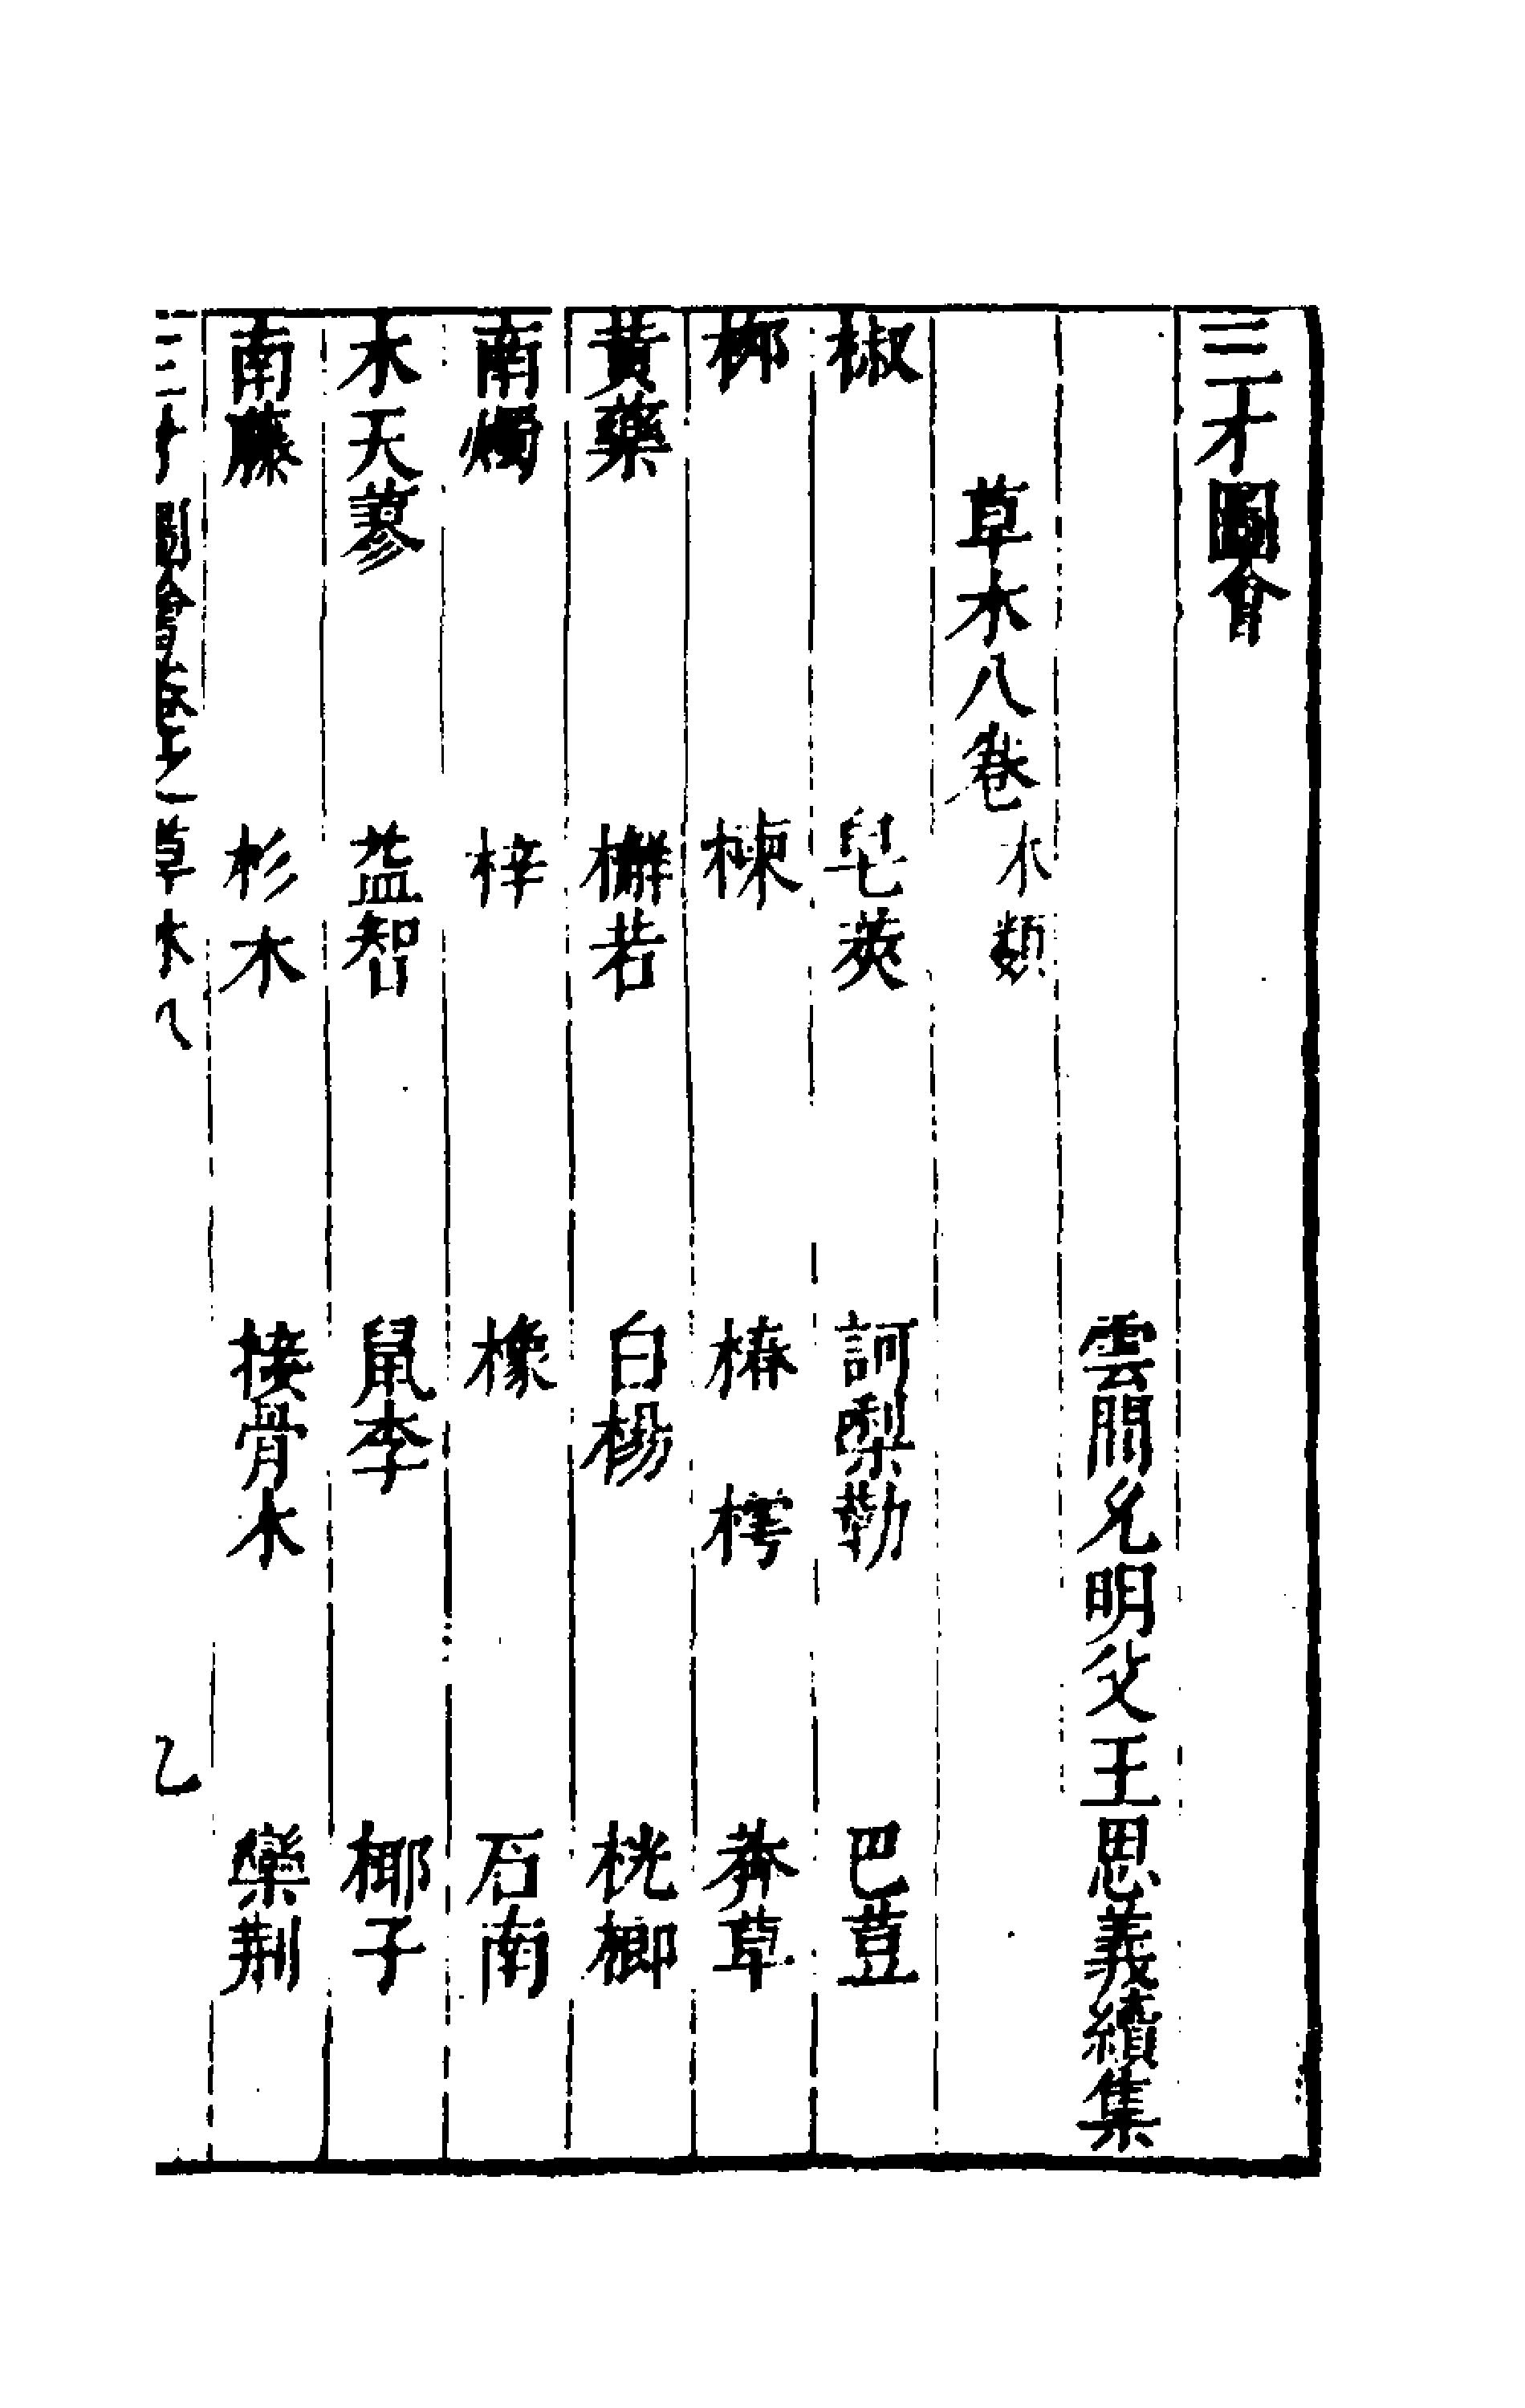 三才圖會
雲間允明父王思義續集
草木八卷 木類
椒 皂莢 訶梨勒 巴荳
柳 楝 椿 樗 莽草
黃藥 槲若 白楊 桄榔
南燭 梓 橡 石南
木天蓼 益智 鼠李 椰子
南藤 杉木 接骨木 欒荆
三才圖會卷之 草木八 乙